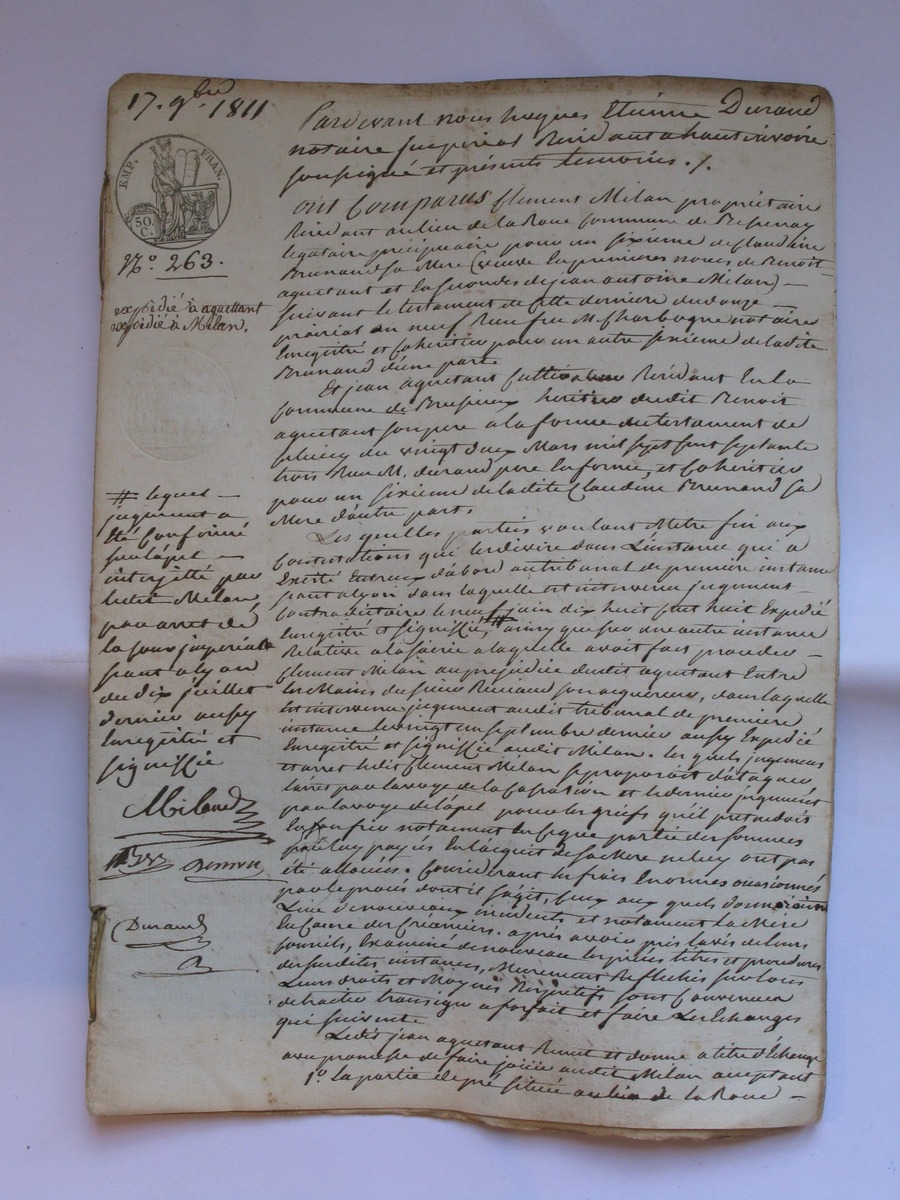 17. 9bre. 1811
EMP. FRAN.
50. C.
N.º 263.
expédié à aquettant
expédié à Milan.
Pardevant nous hugues Etienne Durand
notaire Imperial Residant a haute rivoire
soussigné et présents temoins ./.
ont Comparus Clement Milan propriétaire
Residant au lieu de la Roue Commune de
légataire préciputaire pour un sixieme de Claudine
Brunand sa Mere (veuve en premieres noces de Benoit
aquetant et en secondes de jean antoine Milan) –
suivant le testament de cette derniere du douze –
prairial an neuf Reçu feu M. Charbogne notaire
Enregistré et Coheritier pour un autre sixieme de ladite
Brunand d'une part.
Et jean aquetant Cultivateur Résidant En la
Commune de Brussieux heritier dudit Benoit
aquetant son pere a la forme du testament de
celuicy du vingt deux Mars mil sept cent septante
trois Reçu M. durand pere En forme, et Coheritier
pour un sixieme de ladite Claudine Brunand sa
Mere d'autre part.
Les quelles parties voulant Metre fin aux
Contestations qui les divise dans L'instance qui a
Existé Entreux d'abord au tribunal de premiere instance
seant a lyon dans laquelle est intervenu jugement
Contradictoire le neuf juin dix huit cent huit Expedié
Enregistré et signiffié, # ainsy que sur une autre instance
Relative a la saisie a laquelle avoit fait proceder
Clement Milan au prejudice dudit aquetant Entre
les Mains du sieur son acquereur, dans laquelle
Est intervenu jugement audit tribunal de premiere
instance le vingt un septembre dernier aussy Expedié
Enregistré et signiffié audit Milan. les quels jugements
et arret ledit Clement Milan se proposoit d'ataquer
l'arret par la voye de la Cassation et le dernier jugement
par la voye de l'apel pour les griefs qu'il pretendoit
notament En ce que partie des sommes
par luy payées En l'acquit de sa Mere ne luy ont pas
été allouées. Considerant les frais Enormes ocasionnés
par le procés dont il s'agit, Ceux aux quels donneroient
Lieu de nouveaux incidents et notament la Mise
En Cause des Créanciers. apres avoir pris l'avis de leurs
Conseils, Examiné de nouveau les pieces titres et procedures
des susdites instances, Murement Reflechis sur tous
Leurs droits et Moyens Respectifs sont Convenus
de traiter transiger a forfait et faire Les Echanges
qui suivent.
Ledit jean aquetant Remet et donne a titre d'Echange
avec promesse de faire jouir audit Milan acceptant
1º. La partie de pré située au lieu de la Roue –
# lequel –
jugement a
Eté Confirmé
sur l'apel –
interjetté par
ledit Milan
par arret de
la Cour imperiale
seant a lyon
du dix juillet
dernier aussy
Enregistré et
signiffié
Milan
Durand